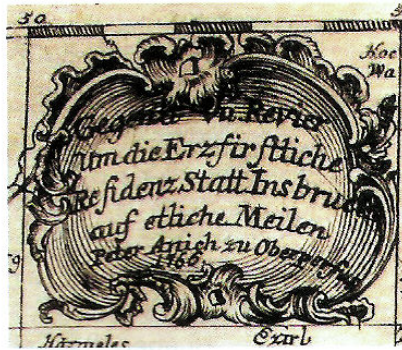 50 5
Hoc
Wa
Gegend Revier
um die Erzfürstliche
Residenz Statt Insbruck
auf etliche Meilen
Peter Anich zu Oberperfus
Härmeles